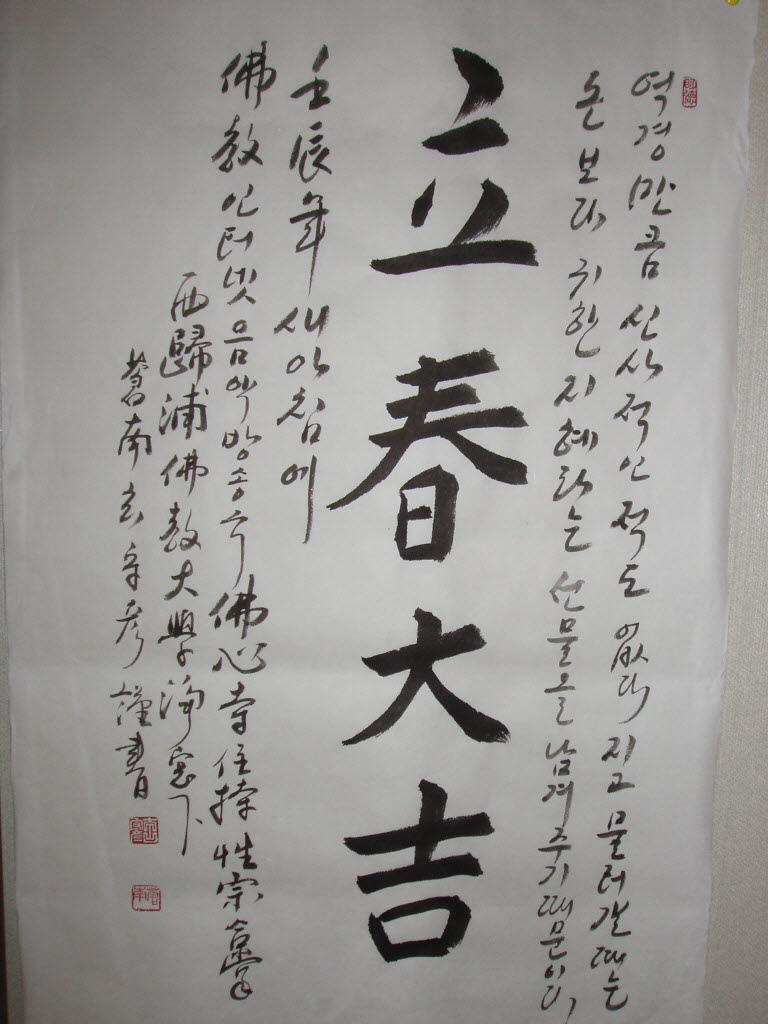 역경만큼 신사적인 적도 없다 지고 물러갈 때는
보다 귀한 지혜라는 선물을 남겨 주기 때문이다
立春大吉
壬辰年 새아침에
佛敎인터넷음악방송국 佛心寺住持 性宗合掌
西歸浦佛敎大學淨窓下
南玄 謹書